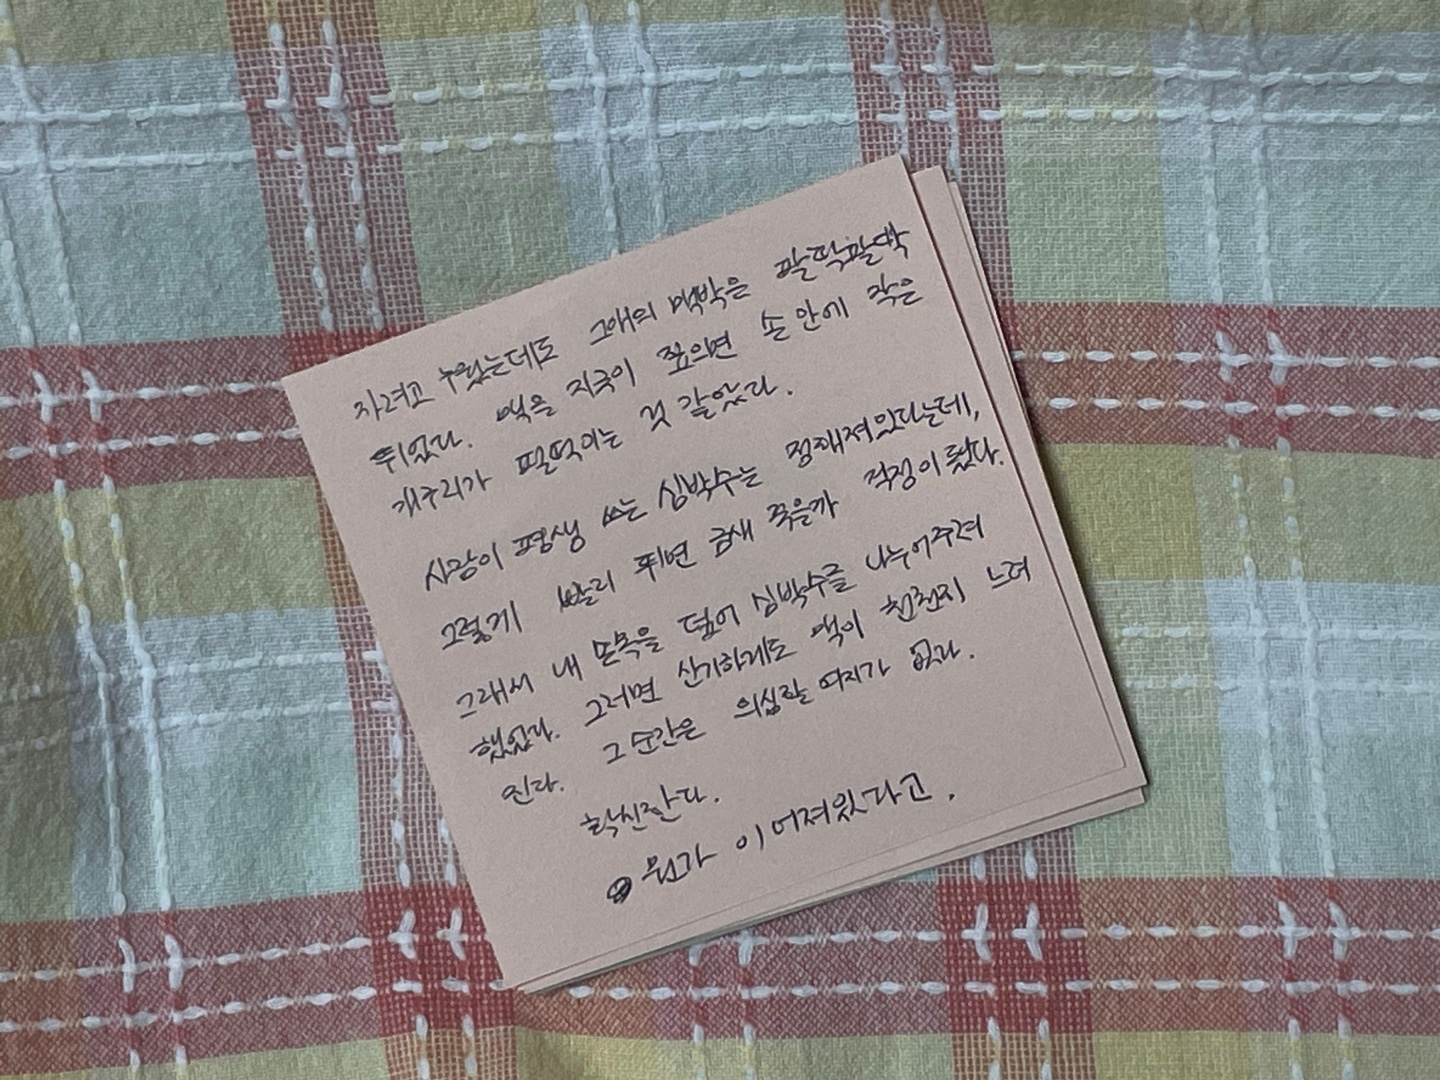 자려고 누웠는데도 그애의 맥박은 팔딱팔딱
뛰었다. 맥을 지긋이 짚으면 손 안에 작은
개구리가 펄떡이는 것 같았다.
사람이 평생 쓰는 심박수는 정해져있다는데,
그렇게 빨리 뛰면 금새 죽을까 걱정이 됐다.
그래서 내 손목을 덮어 심박수를 나누어주려
했었다. 그러면 신기하게도 맥이 천천히 느려
진다. 그 순간은 의심할 여지가 없다.
확신한다.
뭔가 이어져있다고.